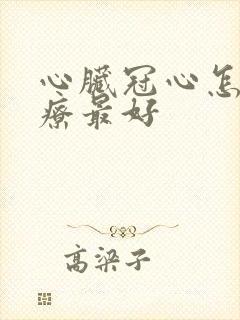 心臟冠心怎
療最好
高梁子